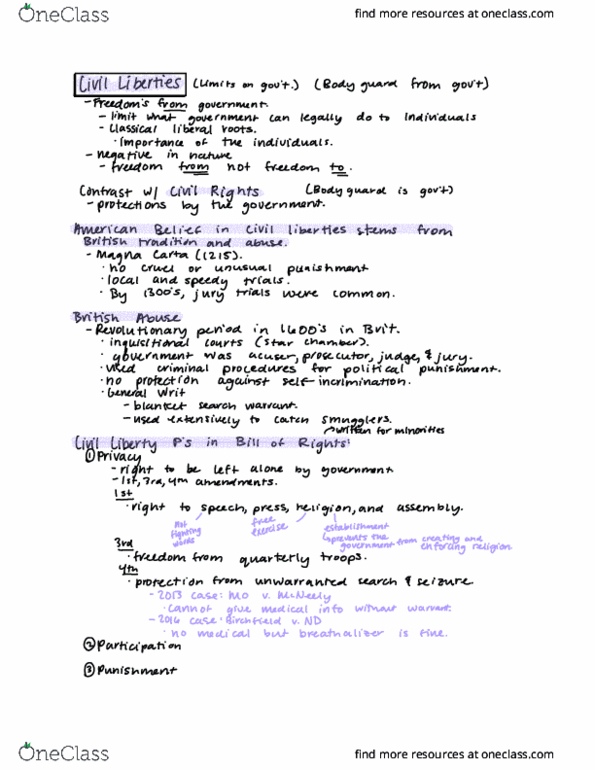 OneClass
find more resources at oneclass.com
Civil Liberties (Limits on gov't.) (Body guard from gov't)
- Freedom's from government.
- limit what government can legally do to individuals
- Classical liberal roots.
· Importance of the individuals.
- negative in nature
- freedom from not freedom to.
Contrast w/ Civil Rights (Bodyguard is gov't)
- protections by the government.
American Belief in Civil liberties stems from
British tradition and abuse.
- Magna Carta (1215).
· no cruel or unusual punishment
· local and speedy trials.
· By 1300's, jury trials were common.
British Abuse
- Revolutionary period in 1600's in Brit.
· inquisitional courts (Star chamber).
· government was acuser, prosecutor, judge, & jury.
· used criminal procedures for political punishment.
· no protection against self-incrimination.
· General Writ
- blanket search warrant.
- used extensively to catch smugglers.
written for minorities
Civil Liberty P's in Bill of Rights:
① Privacy
- right to be left alone by government
- 1st, 3rd, 4th amendments.
1st
· right to speech, press, religion, and assembly.
not fighting words
free exercise
establishment
↳ prevents the government from creating and enforcing religion.
3rd
· freedom from quarterly troops.
4th
· protection from unwarranted search & seizure.
- 2013 case: MO v. McNeely
· cannot give medical info without warrant.
- 2016 case: Birchfield v. ND
· no medical but breathalizer is fine.
② Participation
③ Punishment
OneClass
find more resources at oneclass.com